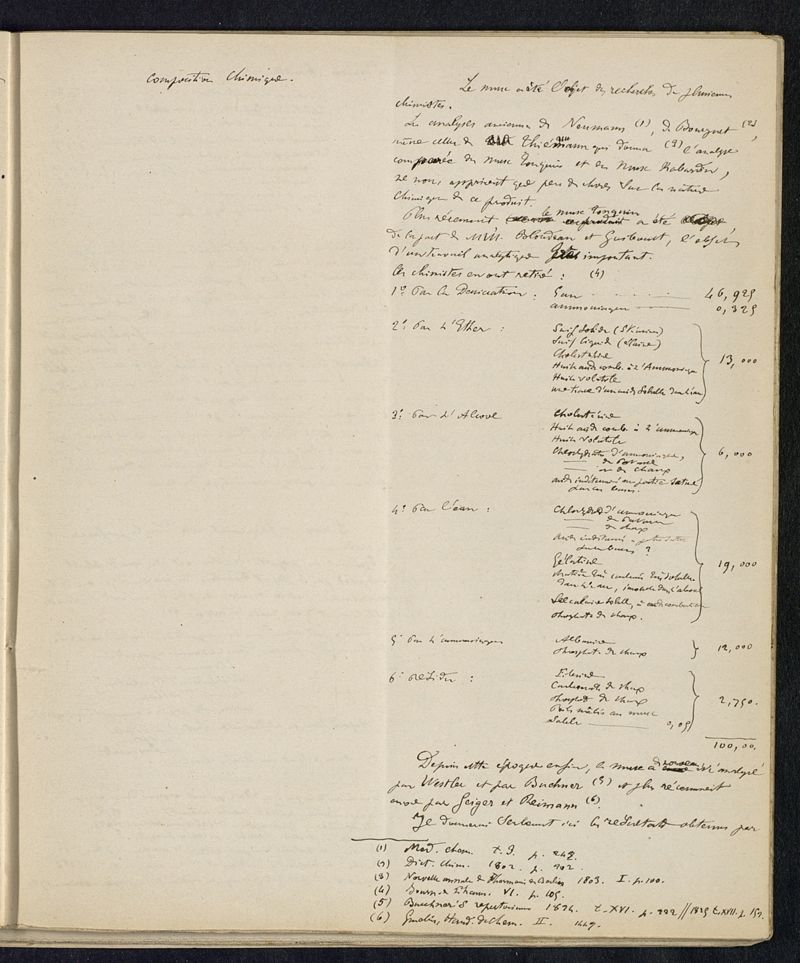 Composition Chimique.
Le musc a été l'objet des recherches de plusieurs
chimistes.
Les analyses anciennes de Neumann (1), de Bouquet (2),
même celles de Thiemann qui donna (3) l'analyse
comparée du musc Tonquin et du musc Kabardin,
ne nous apprirent que peu de choses sur la nature
chimique de ce produit.
Plus récemment le musc Tonquin a été
de la part de MM. Blondeau et Guibourt, l'objet
d'un travail analytique important.
Ces chimistes en ont retiré : (4)
1º Par la Dessiccation : Eau 46,925
ammoniaque 0,325
2º Par l'Ether : Suif solide (Stéarine)
Suif liquide (élaine)
Cholestérine
Huile acide comb. à l'Ammoniaque
Huile volatile
une trace d'un acide soluble dans l'eau
13,000
3º Par l'Alcool Cholestérine
Huile acide comb. à l'ammoniaque
Huile volatile
Chlorhydrate d'ammoniaque,
de potasse
et de chaux
acide indéterminé en partie saturé
par les bases.
6,000
4º Par l'eau : Chlorhydrate d'ammoniaque
de potasse
de chaux
acide indéterminé
par les bases ?
Gélatine
matière très carbonée très soluble
dans l'eau, insoluble dans l'alcool
Sel calcaire soluble, à acide combustible
phosphate de chaux.
19,000
5º Par l'ammoniaque Albumine
phosphate de chaux
12,000
6º Résidu : Fibrine
Carbonate de chaux
phosphate de chaux
Poils mêlés au musc
Sable 0,05
2,750.
100,00.
Depuis cette époque enfin, le musc a de nouveau été analysé
par Westler et par Buchner (5) et plus récemment
encore par Geiger et Reimann (6).
Je donnerai seulement ici les résultats obtenus par
(1) Med. chem. t. 3. p. 248.
(2) Dict. chim. 1802. p. 902.
(3) Nouvelle annale de Pharmacie de Berlin 1803. I. p. 100.
(4) Journ. de Pharm. VI. p. 105.
(5) Buchner's repertorium 1824. t. XVI. p. 222 // 1825 t. XVII. p. 159.
(6) Gmelin, Hand. d. Chem. II. 1449.